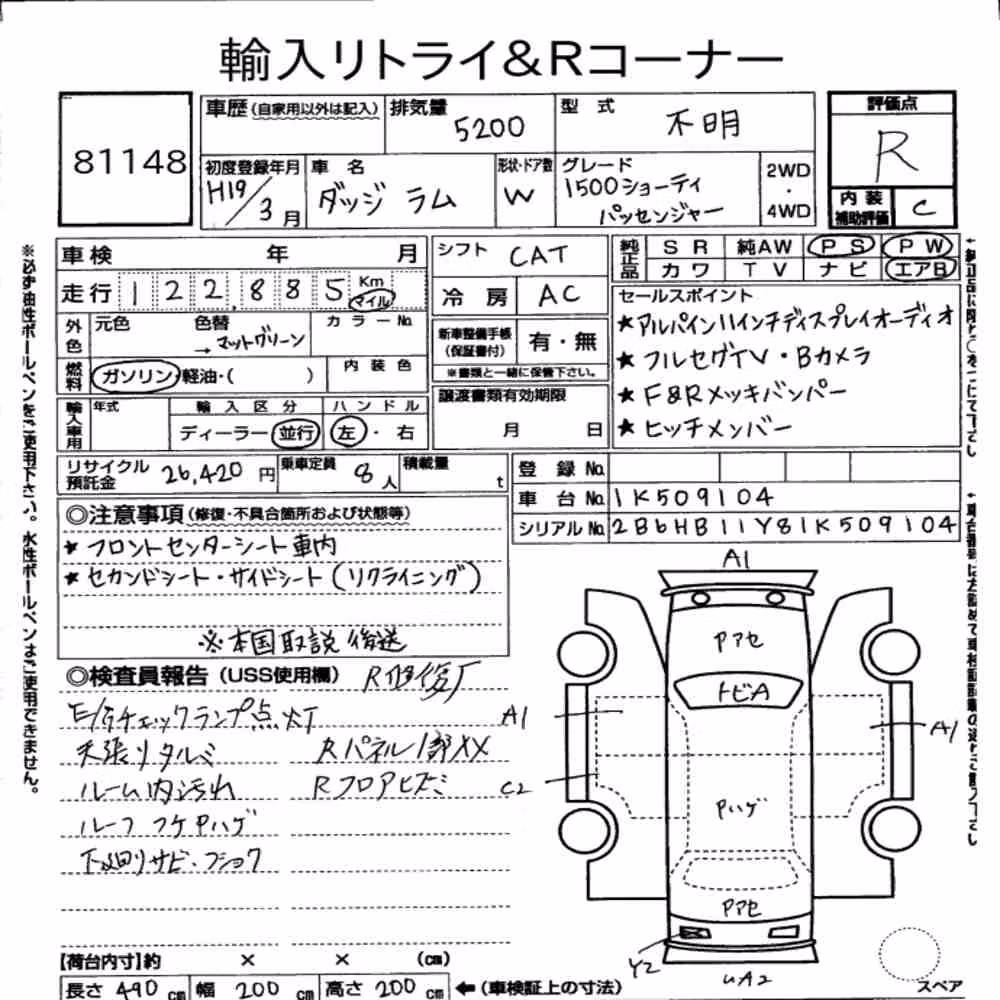 輸入リトライ&Rコーナー
81148
車歴(自家用以外は記入) 排気量 5200 型式 不明 評価点 R
初度登録年月 H19/3月 車名 ダッジ ラム 形状・ドア数 W グレード 1500ショーティ パッセンジャー 2WD・4WD
内装補助評価 C
車検 年 月 シフト CAT 純正品 SR 純AW PS PW
カワ TV ナビ エアB
走行 122,885 Km マイル 冷房 AC
セールスポイント
★アルパイン11インチディスプレイオーディオ
★フルセグTV・Bカメラ
★F&Rメッキバンパー
★ヒッチメンバー
外色 元色 色替 →マットグリーン カラーNo. 新車整備手帳(保証書付) 有・無
※書類と一緒に保管下さい。
燃料 ガソリン・軽油・( ) 内装色
譲渡書類有効期限 月 日
輸入車用 年式 輸入区分 ハンドル
ディーラー 並行 左・右
リサイクル預託金 26,420円 乗車定員 8人 積載量 t
登録No.
車台No. 1K509104
シリアルNo. 2B6HB11Y81K509104
◎注意事項(修復・不具合箇所および状態等)
★フロントセンターシート車内
★セカンドシート・サイドシート(リクライニング)
※本国取説後送
◎検査員報告(USS使用欄) R修復歴
E/Gチェックランプ点灯
天張りタルミ Rパネル1部XX
ルーム内汚れ Rフロアヒズミ
ルーフ フケPハゲ
下回りサビ・フショク
A1
Pアセ
トビA
A1
A1
C2
Pハゲ
Pアセ
Y2
UA2
スペア
【荷台内寸】約 × × (cm)
長さ 490cm 幅 200cm 高さ 200cm ←(車検証上の寸法)
※必ず油性ボールペンをご使用下さい。水性ボールペンはご使用できません。